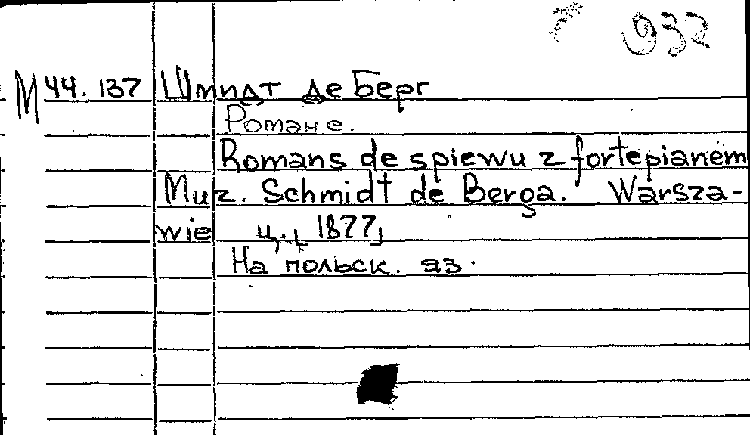 932
М 44.137 Шмидт де Берг
Романс.
Romans de spiewu z fortepianem
Muz. Schmidt de Berga. Warsza-
wie ц. [1877]
На польск. яз.